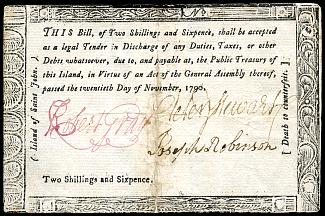 No.
THIS Bill, of Two Shillings and Sixpence, shall be accepted
as a legal Tender in Discharge of any Duties, Taxes, or other
Debts whatsoever, due to, and payable at, the Public Treasury of
this Island, in Virtue of an Act of the General Assembly thereof,
passed the twentieth Day of November, 1790.
Robert Gray
Peter Stewart
Joseph Robinson
Two Shillings and Sixpence.
( Island of Saint John. )
[ Death to counterfeit. ]